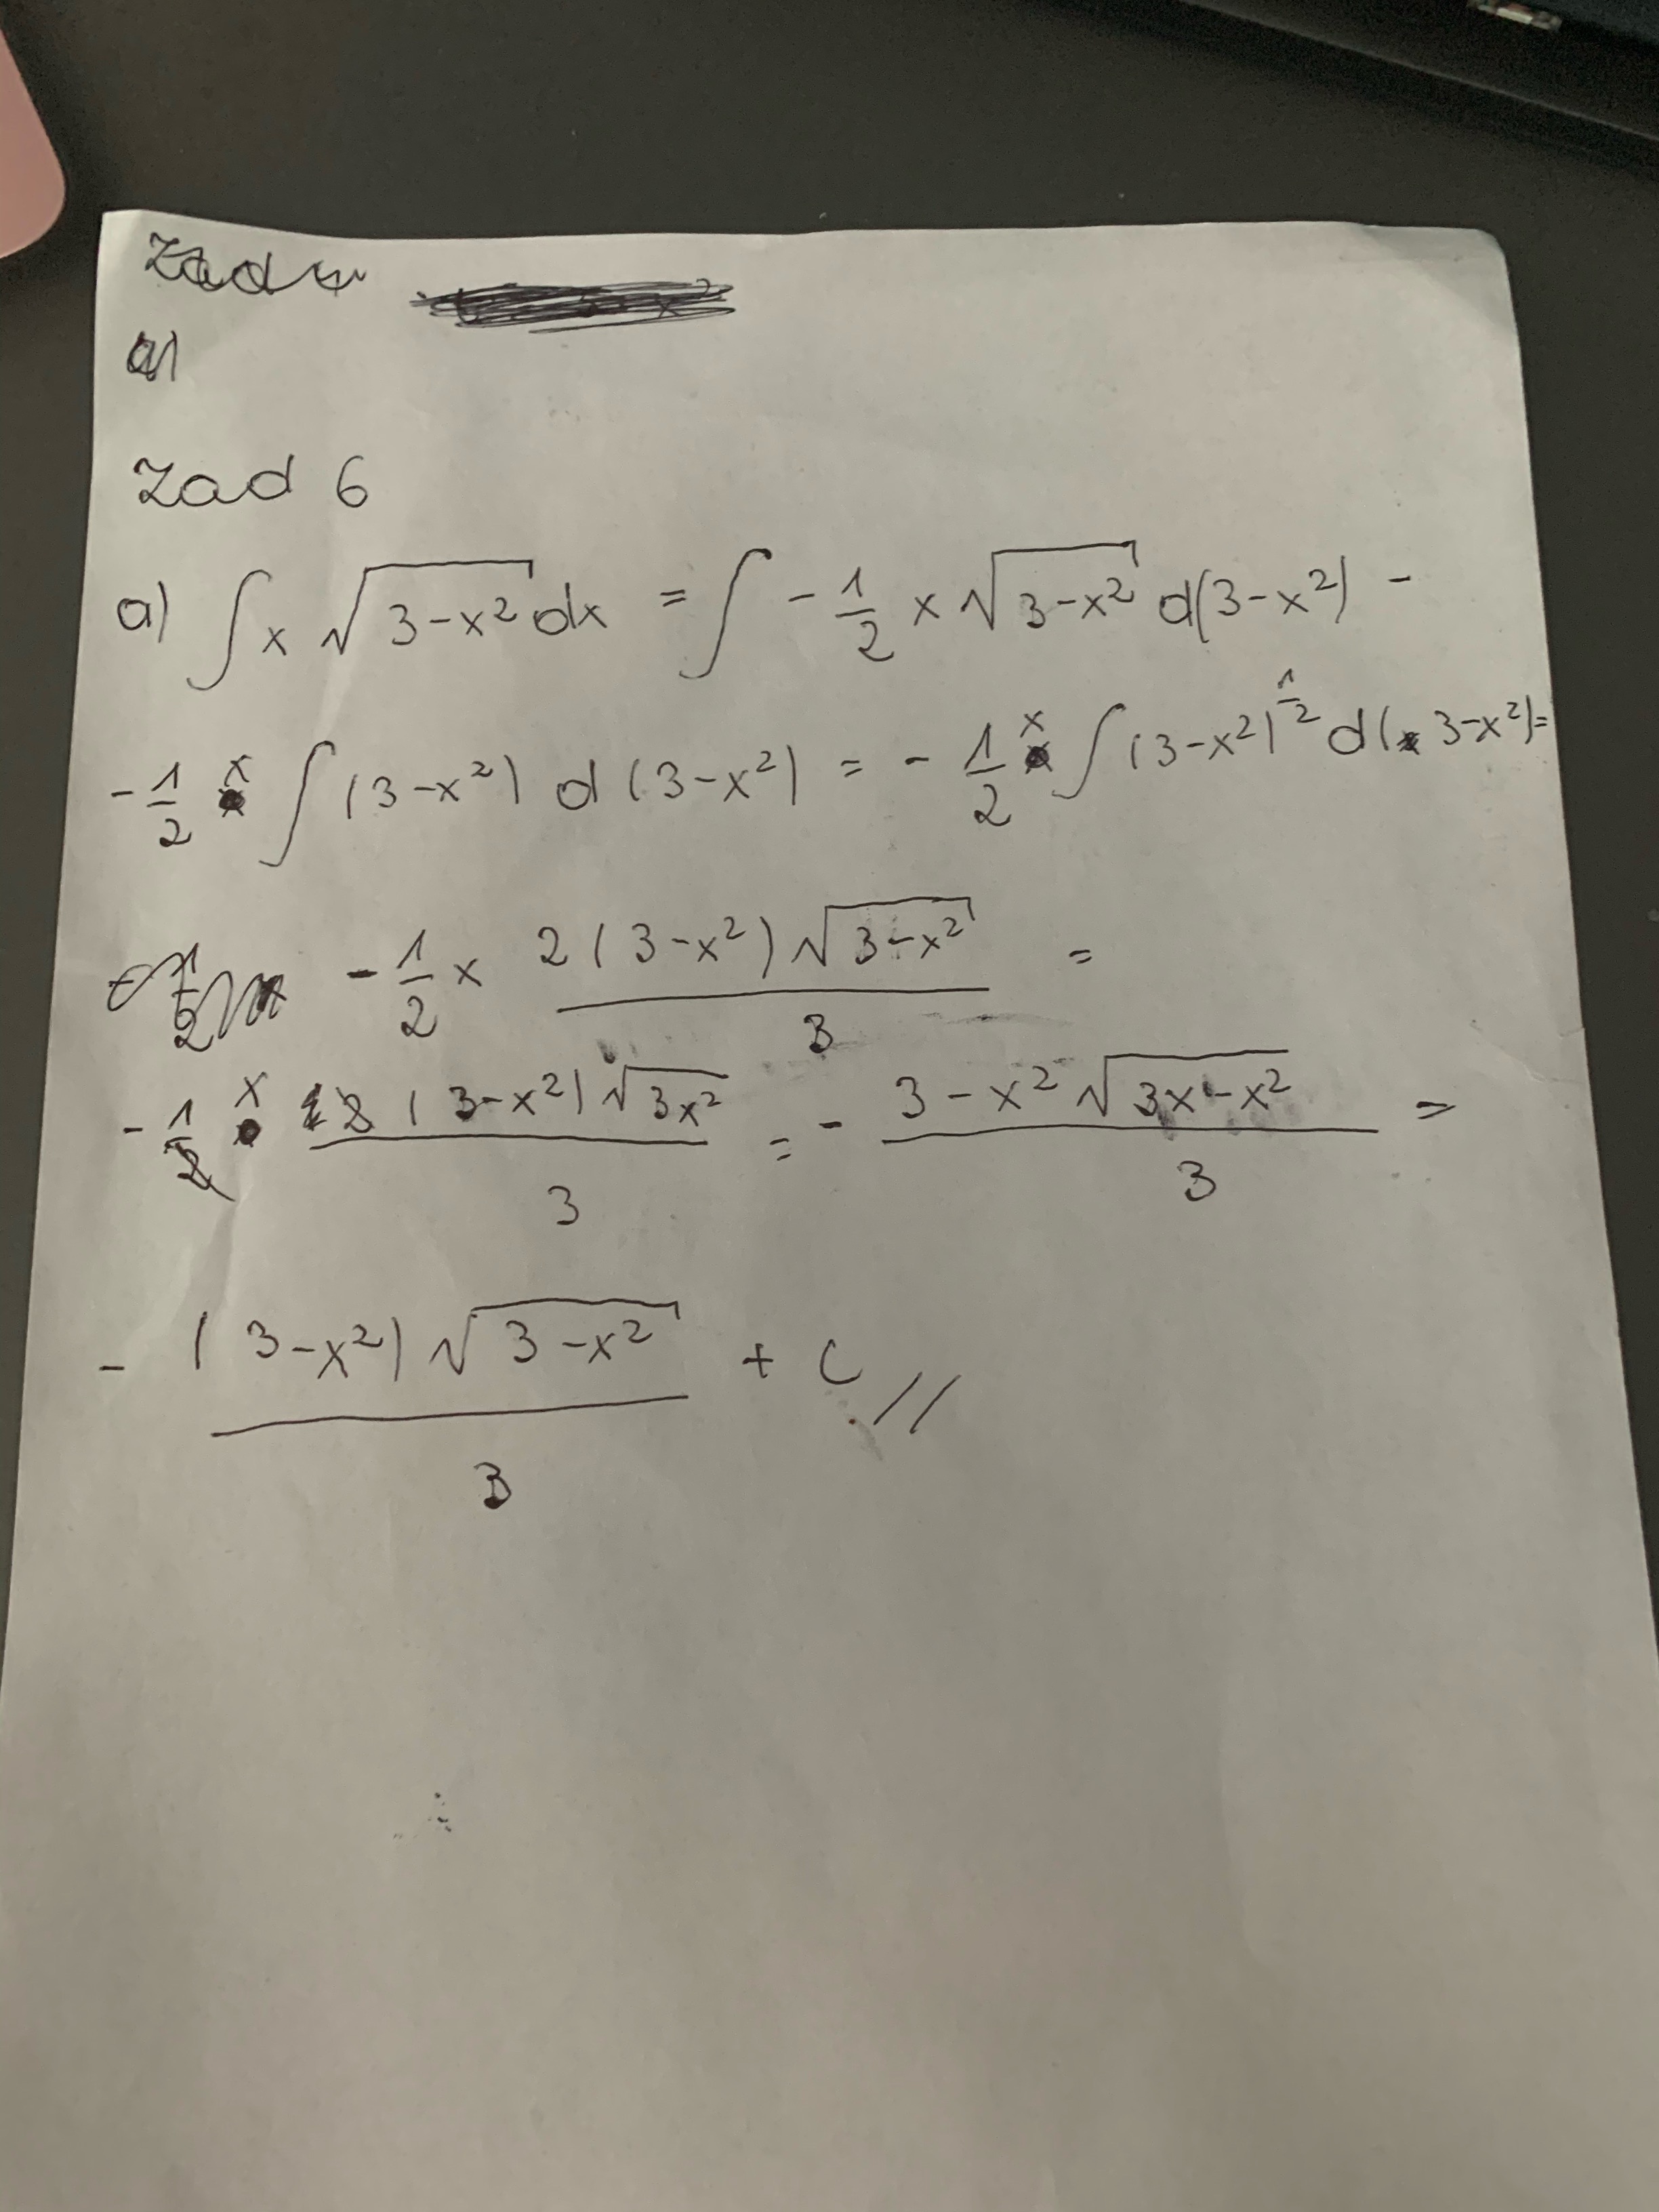 Zad 4
a)
Zad 6
a) ∫ x √(3-x²) dx = ∫ - 1/2 x √(3-x²) d(3-x²) -
- 1/2 x ∫ (3-x²) d (3-x²) = - 1/2 x ∫ (3-x²)^(1/2) d( 3-x²)=
- 1/2 x 2(3-x²)√(3-x²) / 3 =
- 1/2 x 2 (3-x²) √(3x²) / 3 = - 3-x² √(3x-x²) / 3 =
- (3-x²) √(3-x²) / 3 + C //